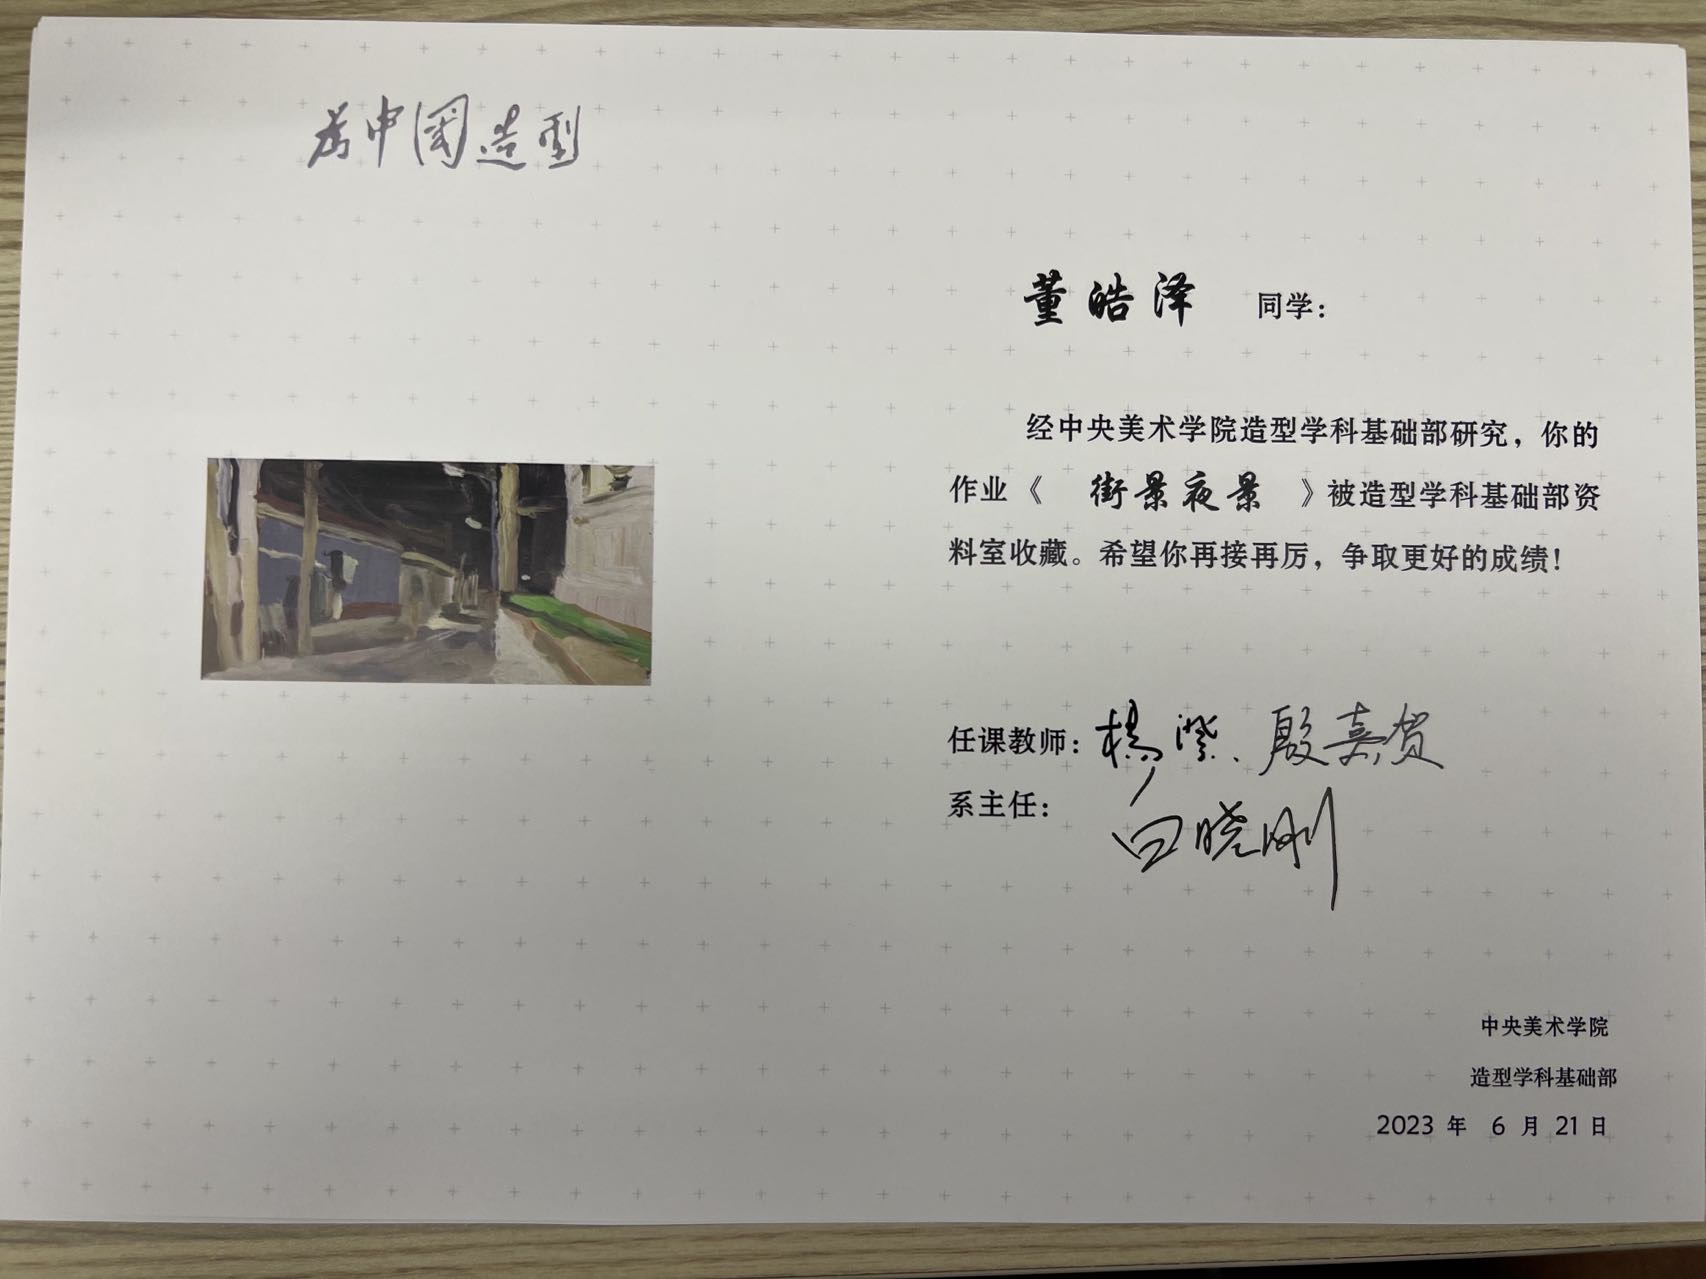 为中国造型
董皓泽 同学：
经中央美术学院造型学科基础部研究，你的
作业《 街景夜景 》被造型学科基础部资
料室收藏。希望你再接再厉，争取更好的成绩！
任课教师：杨澄、殷嘉贺
系主任：
白晓刚
中央美术学院
造型学科基础部
2023 年 6 月 21 日